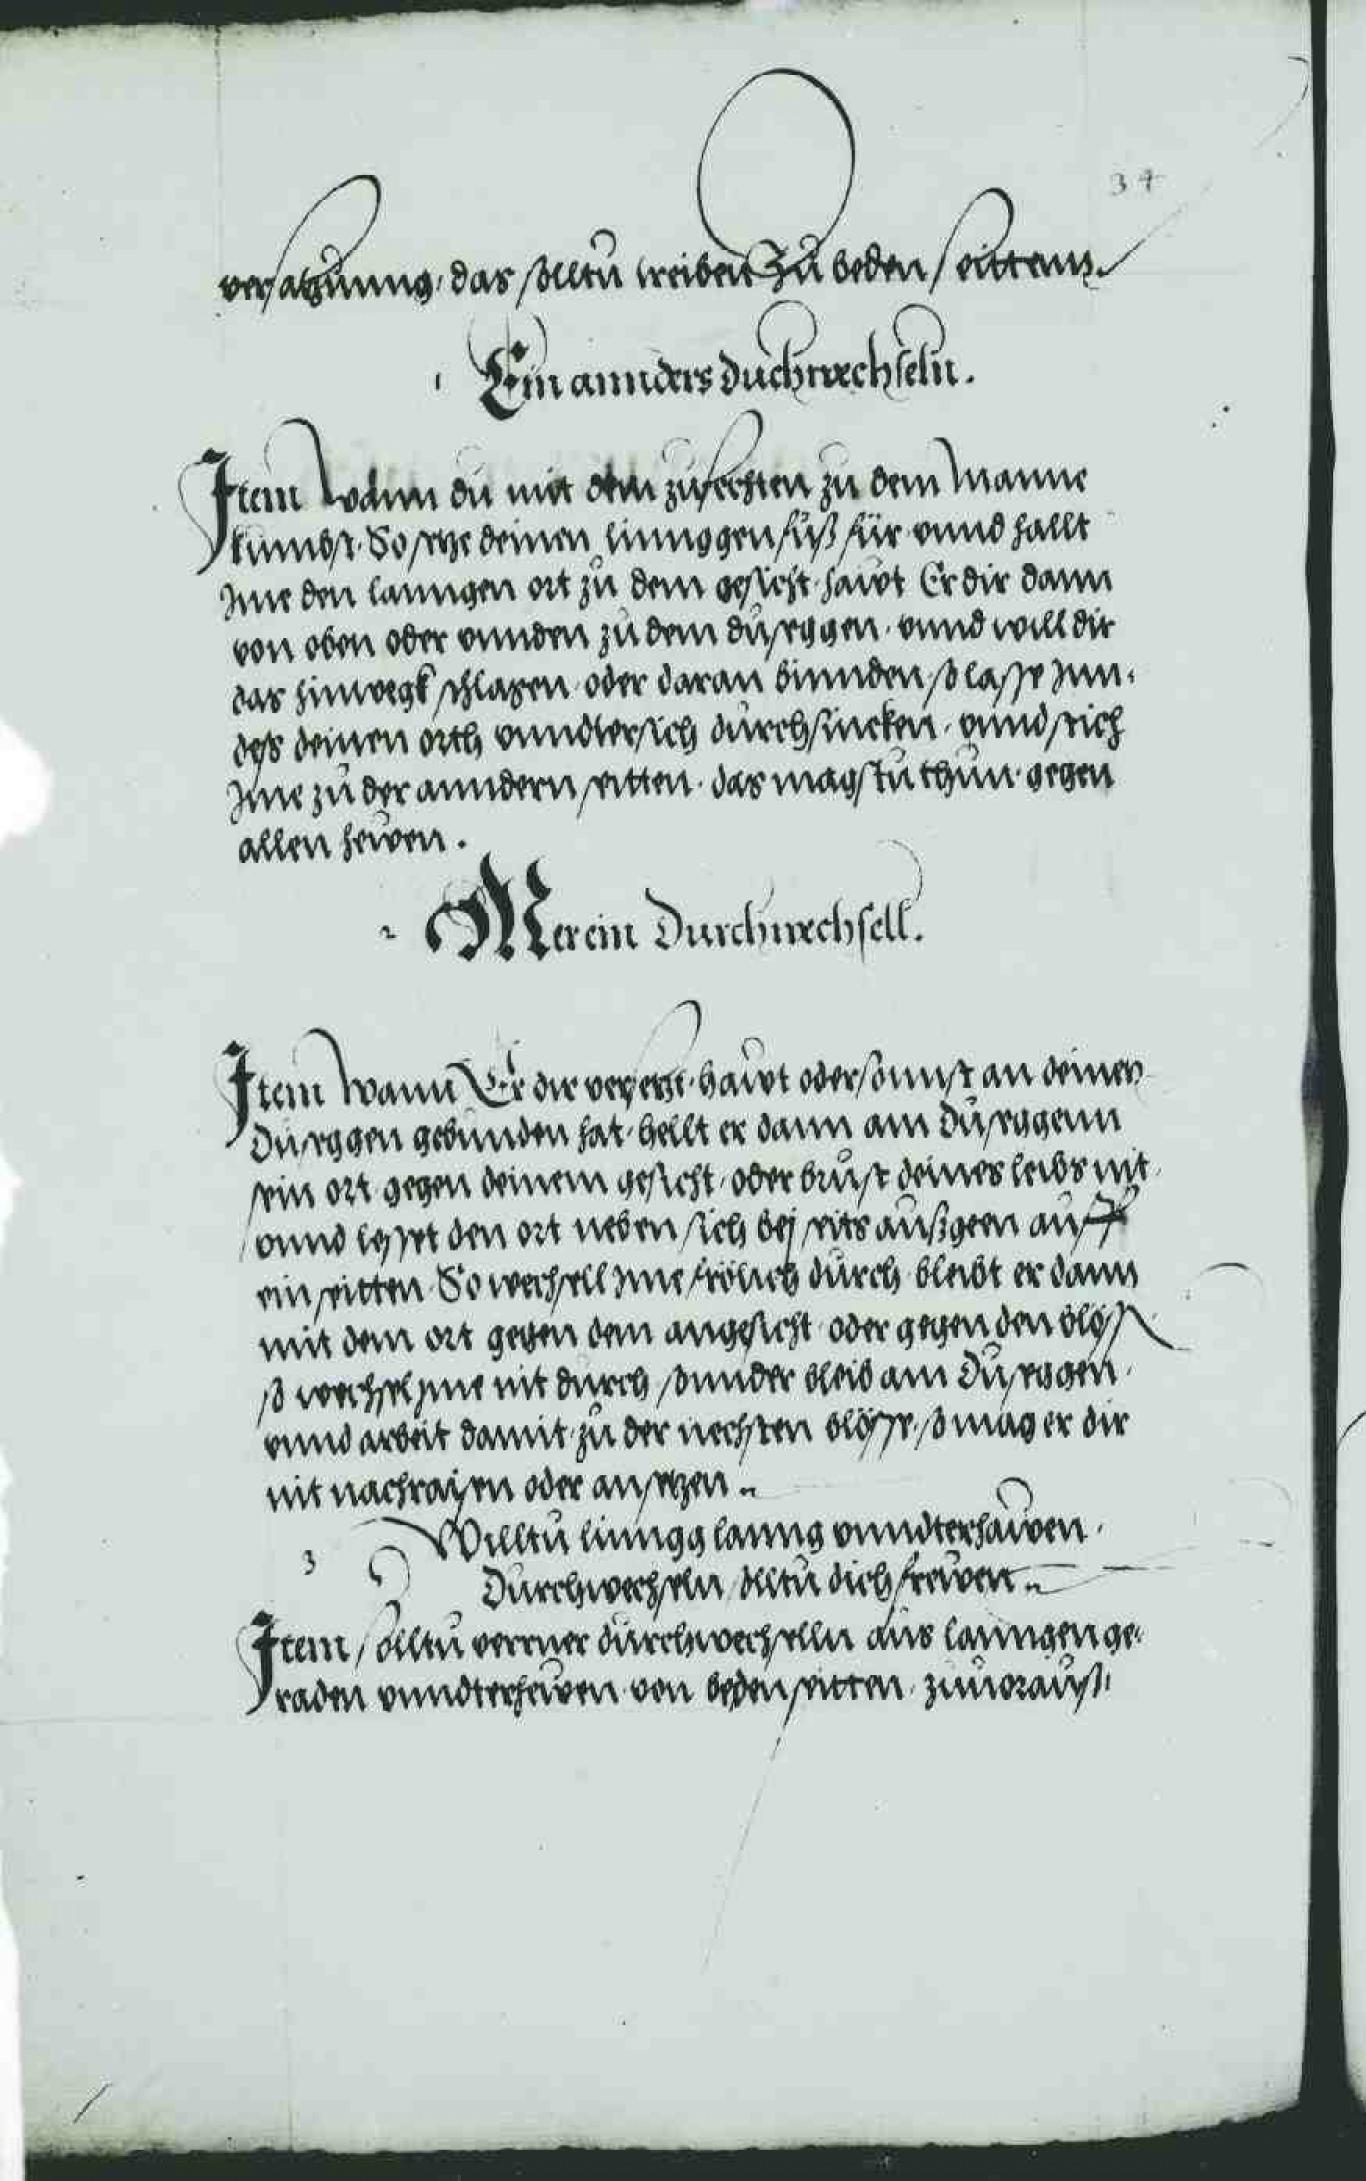 34
versatzunng, das solltu treiben Zu beden seittenn.
1 Ein annders duchwechseln.
Item Wann du mit dem zufechten zu dem Manne
kumbst. So setze deinen linnggen fuß für vnnd hallt
Ime den lanngen ort zu dem gesicht. hawt Er dir dann
von oben oder vnnden zu dem dusäggen. vnnd will dir
das hinwegk schlagen oder daran binnden so lasse Inn-
des deinen orth vnndtersich durchsincken. vnnd stich
Ime zu der anndern seitten. das magstu thun gegen
allen hewen.
2 Mer ein Durchwechsell.
Item Wann Er dir versetzt. hawt oder sonnst an deinen
Dusäggen gebunden hat. hellt er dann am Dusäggenn
sein ort gegen deinem gesicht, oder brust deines leibs nit.
vnnd lesset den ort neben sich bej seits außgeen auff
ein seitten. So wechsell Ime frölich durch. bleibt er dann
mit dem ort gegen dem angesicht oder gegen den blöss
so wechsel Ime nit durch, sonnder bleib am Dusäggen.
vnnd arbeit damit, zu der nechsten blösse, so mag er dir
nit nachraisen oder ansetzen.
3 Willtu linngg lanng vnndterhawen.
Durchwechseln solltu dich frewen.
Item solltu verrner durchwechselln aus lanngen ge-
raden vnndterhewen von beden seitten. zuuorauß.